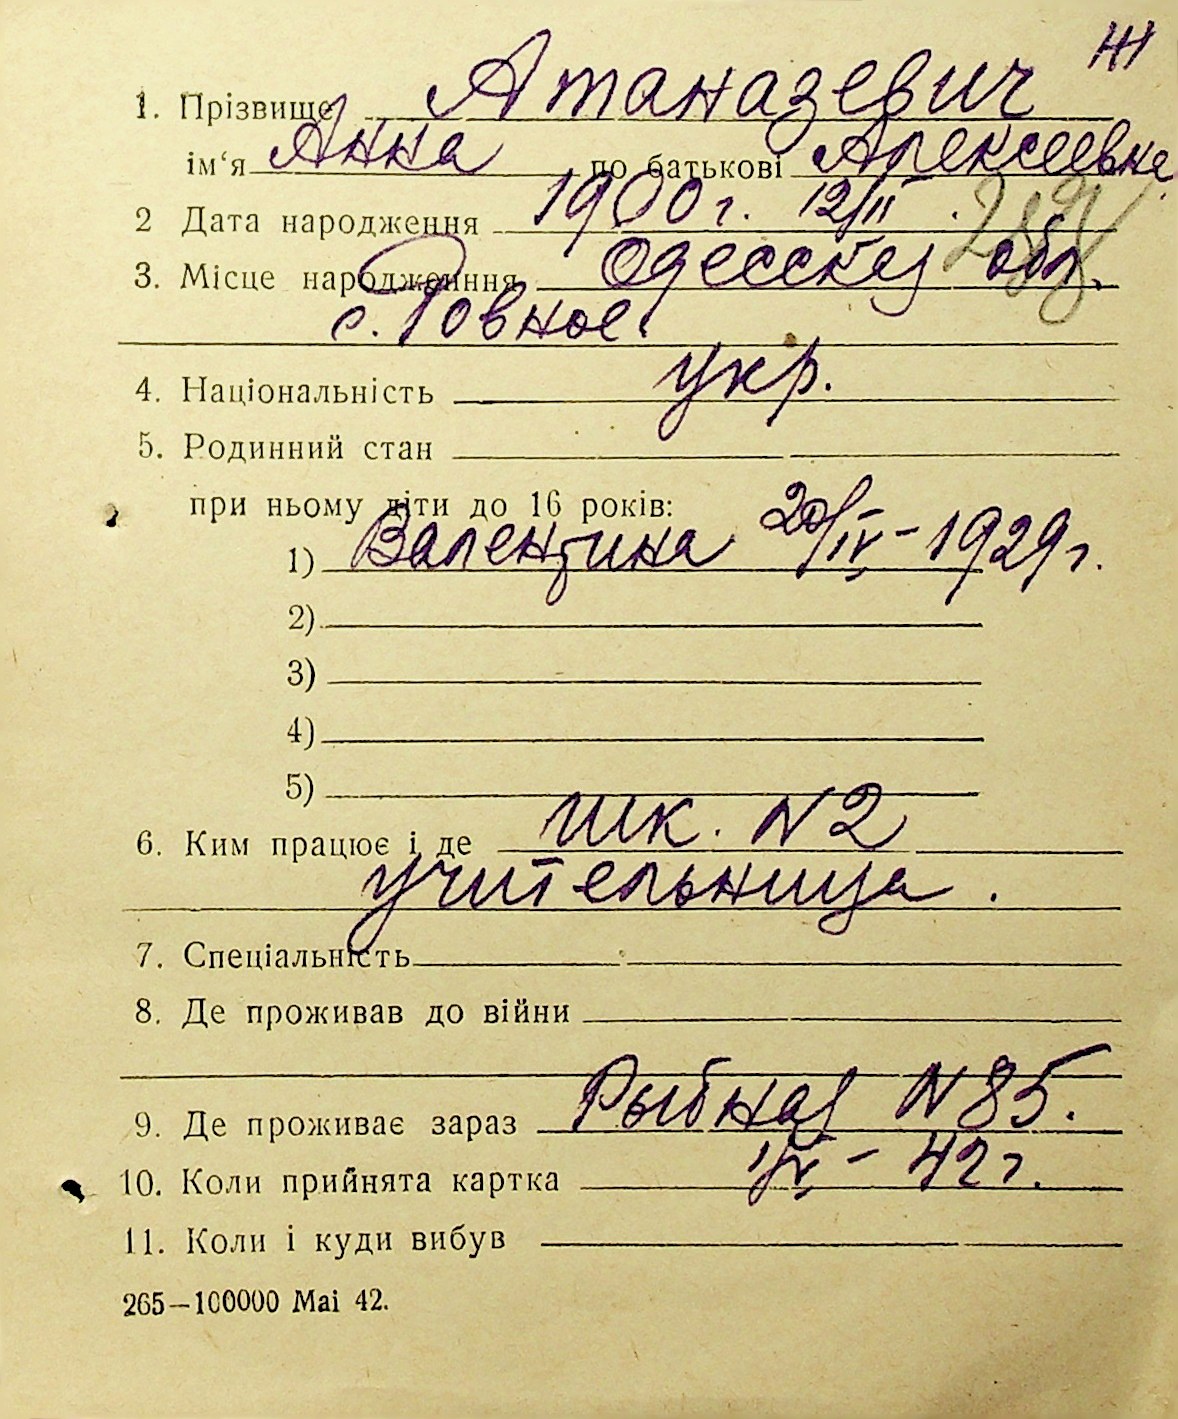 Ж
1. Прізвище Атаназевич
ім‘я Анна по батькові Алексеевна
2 Дата народження 1900 г. 12/II.
3. Місце народженння Одесскея обл.
с. Ровное.
4. Національність укр.
5. Родинний стан
при ньому діти до 16 років:
1) Валентина 20/IV - 1929 г.
2)
3)
4)
5)
6. Ким працює і де шк. N2
учительница.
7. Спеціальність
8. Де проживав до війни
9. Де проживає зараз Рыбная N 85.
10. Коли прийнята картка - 42 г.
11. Коли і куди вибув
265—100000 Mai 42.